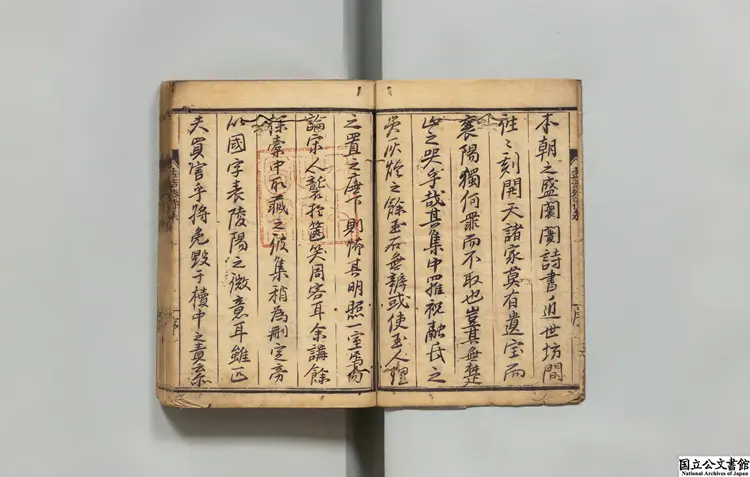 本朝之盛闤闠詩書近世坊間
往〻刻開天諸家莫有遺宝而
襄陽獨何罪而不取也豈其無楚
山之哭乎哉其集中罹祝融氏之
災灰燼之餘玉石無辨或使玉人理
之置之廡下則怖其明照一室焉
論宋人襲於篋笑周客耳余講餘
探橐中所藏之彼集稍為刪定旁
以國字表陵陽之微意耳雖匹
夫買害乎将免毀于櫝中之責矣
国立公文書館
National Archives of Japan